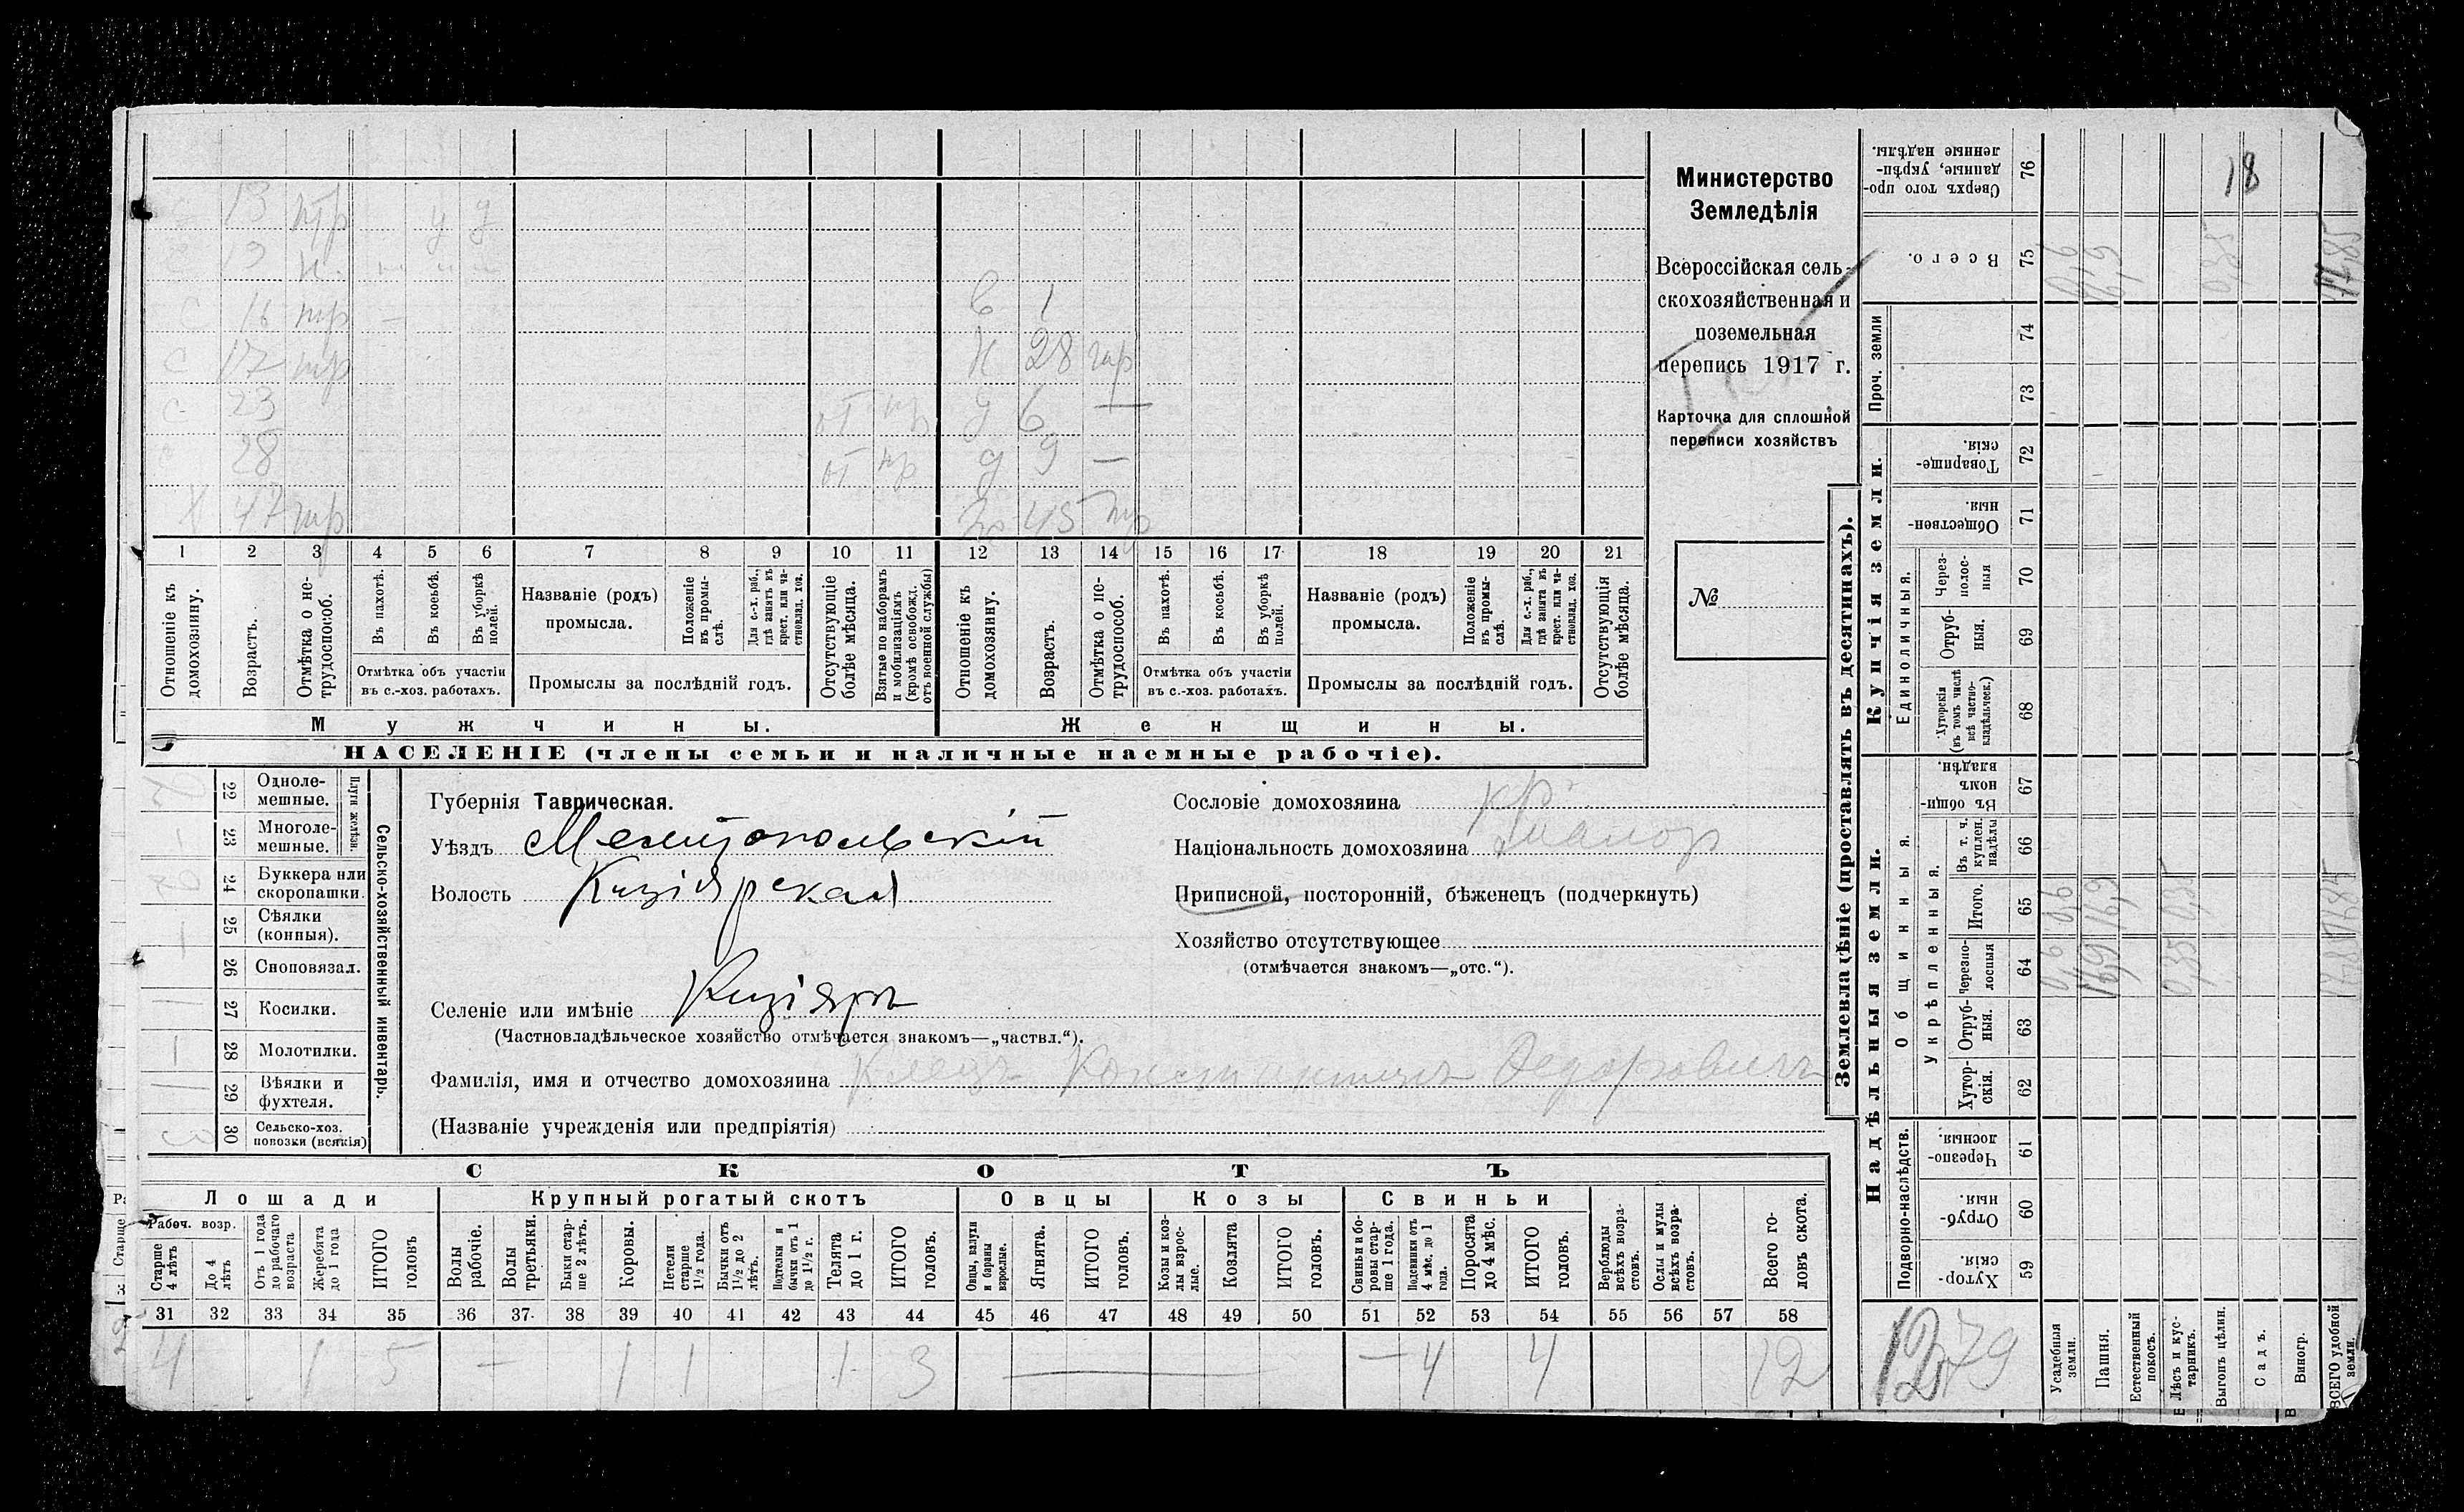 13 тр у у
19 н.
16 тр — 6 1
С 17 тр Н 28 тр
С 23 от пр д 6 —
28 от пр д 9 —
Х 47 тр Ж 45 тр
1 2 3 4 5 6 7 8 9 10 11 12 13 14 15 16 17 18 19 20 21
Отношеніе къ домохознину.
Возрастъ.
Отмѣтка о не-
трудоспособ.
Въ пахотѣ.
Въ косьбѣ.
Въ уборкѣ
полей.
Отмѣтка объ участіи
въ с.-хоз. работахъ.
Названіе (родъ)
промысла.
Положеніе
въ промы-
слѣ.
Для с.-х. раб.,
гдѣ занятъ въ
крест. или ча-
стновлад. хоз.
Промыслы за послѣдній годъ.
Отсутствующіе
болѣе мѣсяца.
Взятые по наборамъ
и мобилизаціямъ
(кромѣ освобожд.
отъ военной службы)
Отношеніе къ
домохозяину.
Возрастъ.
Отмѣтка о не-
трудоспособ.
Въ пахотѣ.
Въ косьбѣ.
Въ уборкѣ
полей.
Отмѣтка объ участіи
въ с.-хоз. работахъ.
Названіе (родъ)
промысла.
Положеніе
въ промы-
слѣ.
Для с.-х. раб.,
гдѣ занята въ
крест. или ча-
стновлад. хоз.
Промыслы за послѣдній годъ.
Отсутствующія
болѣе мѣсяца.
Мужчины.
Женщины.
НАСЕЛЕНІЕ (члены семьи и наличные наемные рабочіе).
Министерство
Земледѣлія
Всероссійская сель-
скохозяйственная и
поземельная
перепись 1917 г.
Карточка для сплошной
переписи хозяйствъ
№
22 Одноле-
мешные.
23 Многоле-
мешные.
Плуги желѣзн.
24 Буккера или
скоропашки.
25 Сѣялки
(конныя).
26 Сноповязал.
27 Косилки.
28 Молотилки.
29 Вѣялки и
фухтеля.
30 Сельско-хоз.
повозки (всякія)
3
Сельско-хозяйственный инвентарь.
Губернія Таврическая.
Уѣздъ Мелитопольскій
Волость Кизіярская
Селеніе или имѣніе Кизіяръ
(Частновладѣльческое хозяйство отмѣчается знакомъ—„частвл.“).
Фамилія, имя и отчество домохозяина Клецъ Константинъ Федоровичъ
(Названіе учрежденія или предпріятія)
Сословіе домохозяина кр
Національность домохозяина малор
Приписной, посторонній, бѣженецъ (подчеркнуть)
Хозяйство отсутствующее
(отмѣчается знакомъ—„отс.“).
СКОТЪ
Лошади
Крупный рогатый скотъ
Овцы
Козы
Свиньи
Рабоч. возр.
Старше
4 лѣтъ
До 4
лѣтъ
Отъ 1 года
до рабочаго
возраста
Жеребята
до 1 года
ИТОГО
головъ
Волы
рабочіе.
Волы
третьяки.
Быки стар-
ше 2 лѣтъ.
Коровы.
Нетели
старше
1½ года.
Бычки отъ
1½ до 2
лѣтъ.
Подтелки и
бычки отъ 1
до 1½ г.
Телята
до 1 г.
ИТОГО
головъ.
Овцы, валухи
и бараны
взрослые.
Ягнята.
ИТОГО
головъ.
Козы и коз-
лы взрос-
лые.
Козлята
ИТОГО
головъ.
Свиньи и бо-
ровы стар-
ше 1 года.
Подсвинки отъ
4 мѣс. до 1
года.
Поросята
до 4 мѣс.
ИТОГО
головъ.
Верблюды
всѣхъ возра-
стовъ.
Ослы и мулы
всѣхъ возра-
стовъ.
Всего го-
ловъ скота.
31 32 33 34 35 36 37 38 39 40 41 42 43 44 45 46 47 48 49 50 51 52 53 54 55 56 57 58
4 1 5 — 1 1 1 3 — — 4 4 12
Землевладѣніе (проставлять въ десятинахъ).
Надѣльныя земли.
Купчія земли.
Проч. земли
Общинныя.
Укрѣпленныя.
Подворно-наслѣдств.
Единоличныя.
Сверхъ того про-
данные, укрѣп-
ленные надѣлы.
76
18
Всего.
75
0,6 16,9 0,35 17,85
74
73
Товарище-
скія
72
Обществен-
ныя.
71
Через-
полос-
ныя
70
Отруб-
ныя.
69
Хуторскія
(въ томъ числѣ
всѣ частно-
владѣльческ.)
68
Въ общин-
номъ
владѣн.
67
Въ т. ч.
куплен.
надѣлы
66
Итого.
65
0,6 16,9 0,35 17,85
Черезпо-
лосныя
64
0,6 16,9 0,35 17,85
Отруб-
ныя.
63
Хутор-
скія.
62
Черезпо-
лосныя.
61
Отруб-
ныя.
60
Хутор-
скія
59
1279
Усадебныя
земли.
Пашня.
Естественный
покосъ.
Лѣсъ и кус-
тарникъ.
Выгонъ цѣлин.
Садъ.
Виногр.
ВСЕГО удобной
земли.